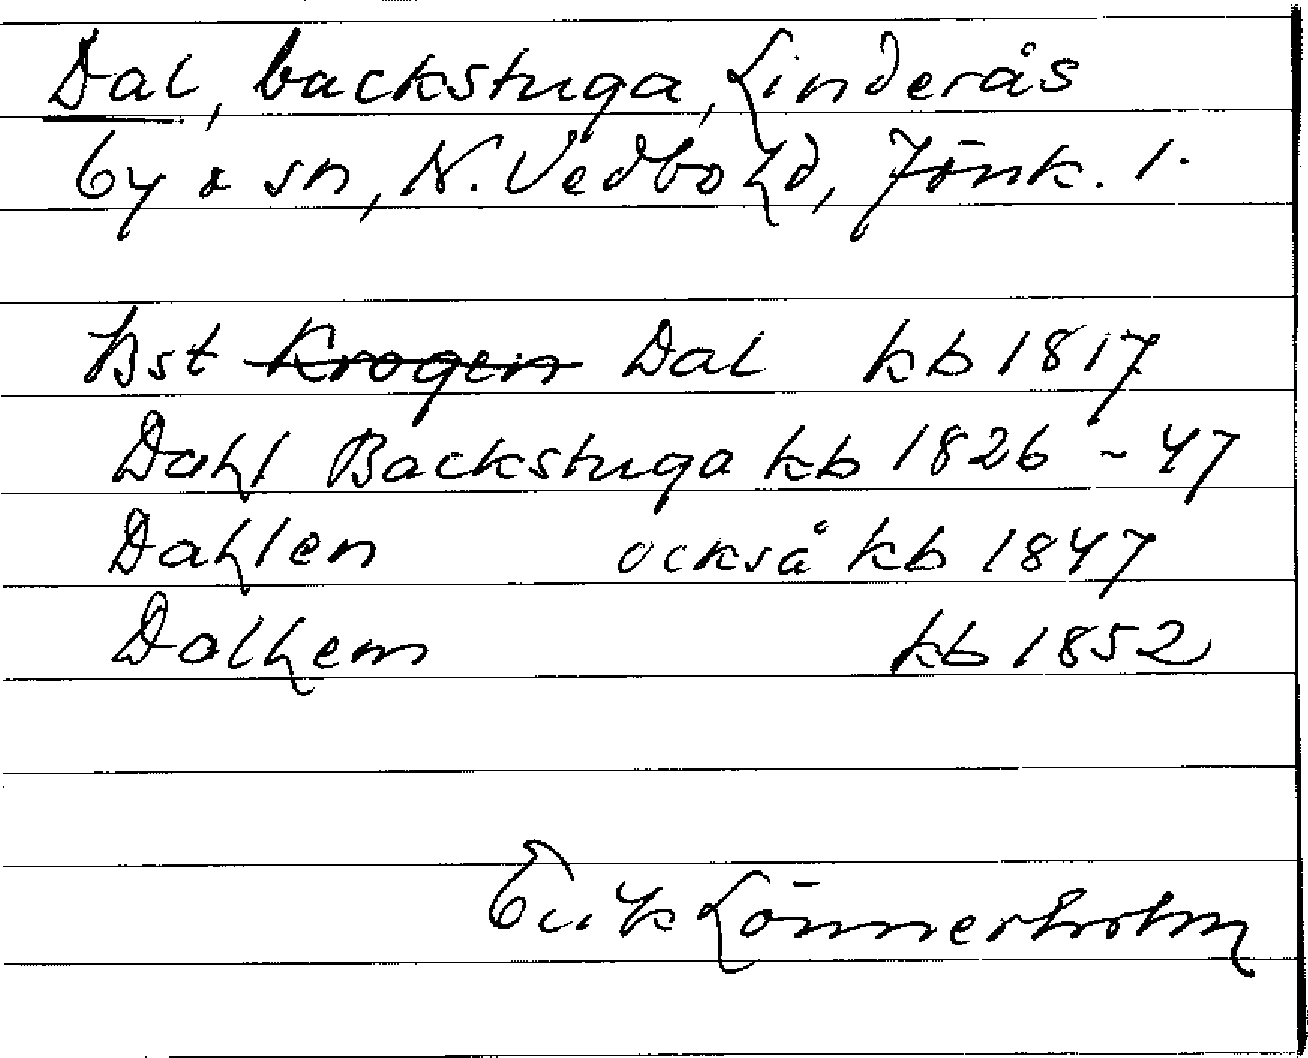 Dal, backstuga, Linderås
by & sn, N. Vedbo hd, Jönk. l.
Bst Krogen Dal kb 1817
Dahl Backstuga kb 1826 - 47
Dahlen också kb 1847
Dalhem kb 1852
Erik Lönnerholm